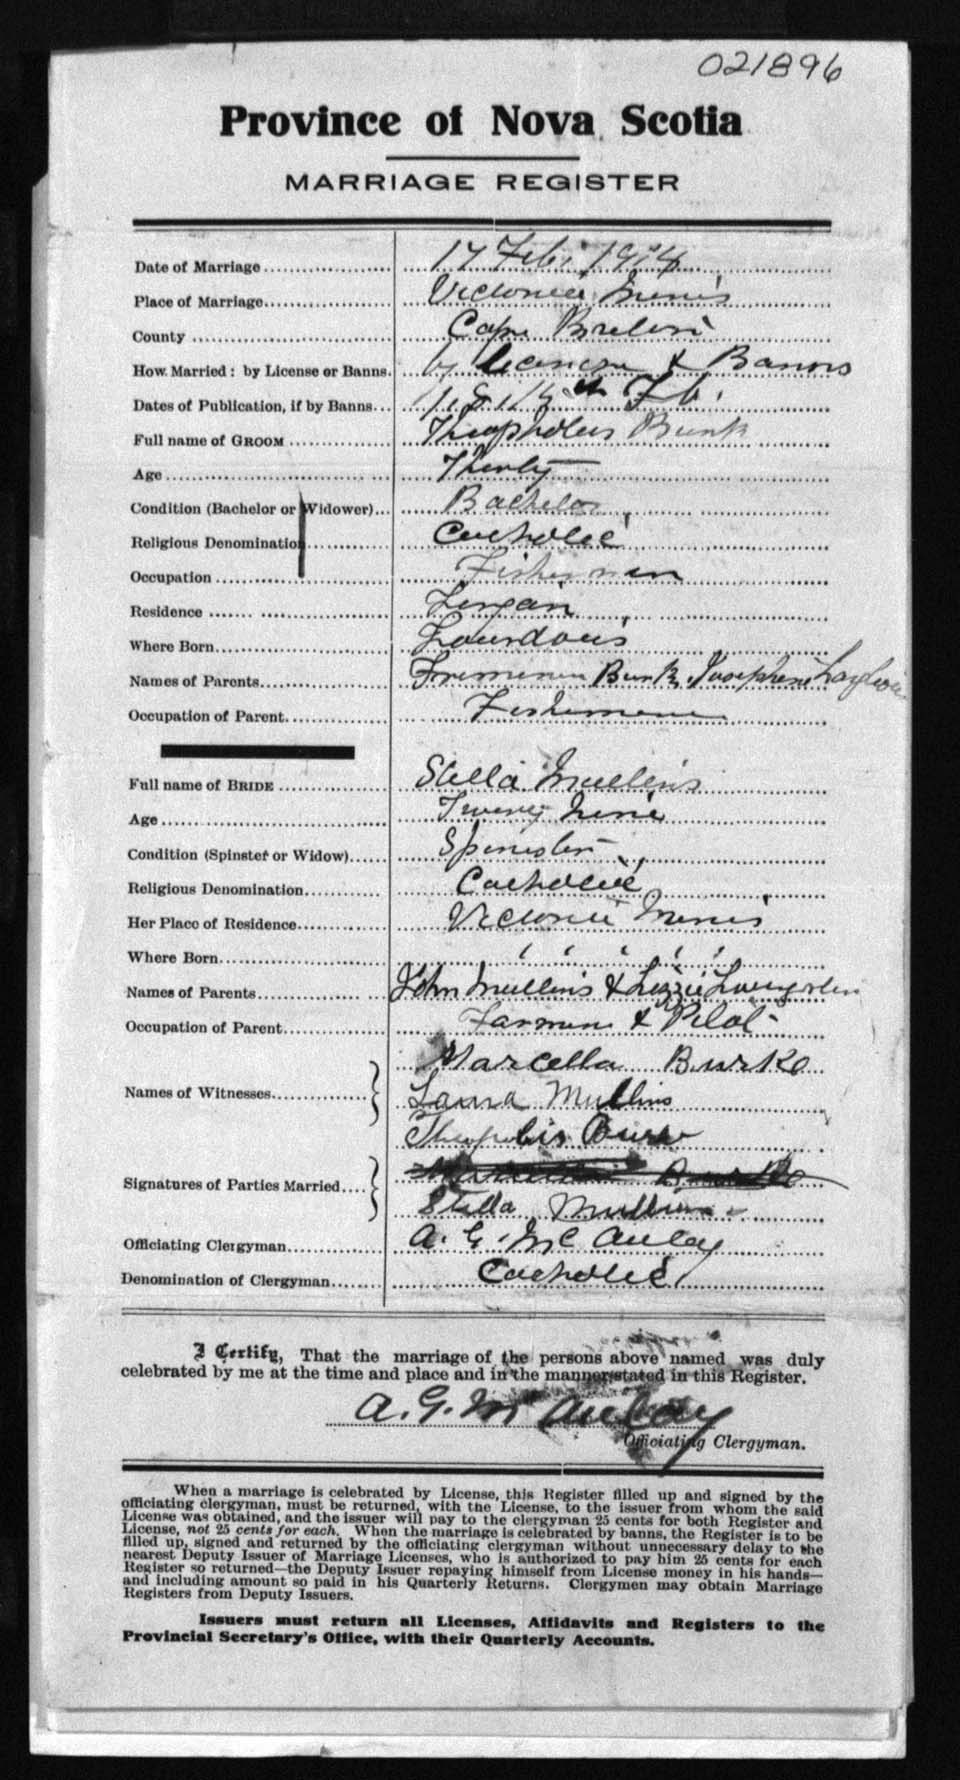 021896
Province of Nova Scotia
MARRIAGE REGISTER
Date of Marriage 17 Feb. 1914
Place of Marriage Victoria Mines
County Cape Breton
How Married: by License or Banns. by licence & Banns
Dates of Publication, if by Banns Feb.
Full name of GROOM Burk
Age Thirty
Condition (Bachelor or Widower) Bachelor
Religious Denomination Catholic
Occupation Fisherman
Residence Lingan
Where Born
Names of Parents Burk, Josephine
Occupation of Parent Fisherman
Full name of BRIDE Stella Mullins
Age Twenty Nine
Condition (Spinster or Widow) Spinster
Religious Denomination Catholic
Her Place of Residence Victoria Mines
Where Born " " " " "
Names of Parents John Mullins & Lizzie
Occupation of Parent Farmer & Pilot
Marcella Burke
Names of Witnesses Laura Mullins
Burke
Signatures of Parties Married Marcella Burke
Stella Mullins
Officiating Clergyman A. G. McAuley
Denomination of Clergyman Catholic
I Certify, That the marriage of the persons above named was duly
celebrated by me at the time and place and in the manner stated in this Register.
A. G. McAulay
Officiating Clergyman.
When a marriage is celebrated by License, this Register filled up and signed by the
officiating clergyman, must be returned, with the License, to the issuer from whom the said
License was obtained, and the issuer will pay to the clergyman 25 cents for both Register and
License, not 25 cents for each. When the marriage is celebrated by banns, the Register is to be
filled up, signed and returned by the officiating clergyman without unnecessary delay to the
nearest Deputy Issuer of Marriage Licenses, who is authorized to pay him 25 cents for each
Register so returned—the Deputy Issuer repaying himself from License money in his hands—
and including amount so paid in his Quarterly Returns. Clergymen may obtain Marriage
Registers from Deputy Issuers.
Issuers must return all Licenses, Affidavits and Registers to the
Provincial Secretary's Office, with their Quarterly Accounts.